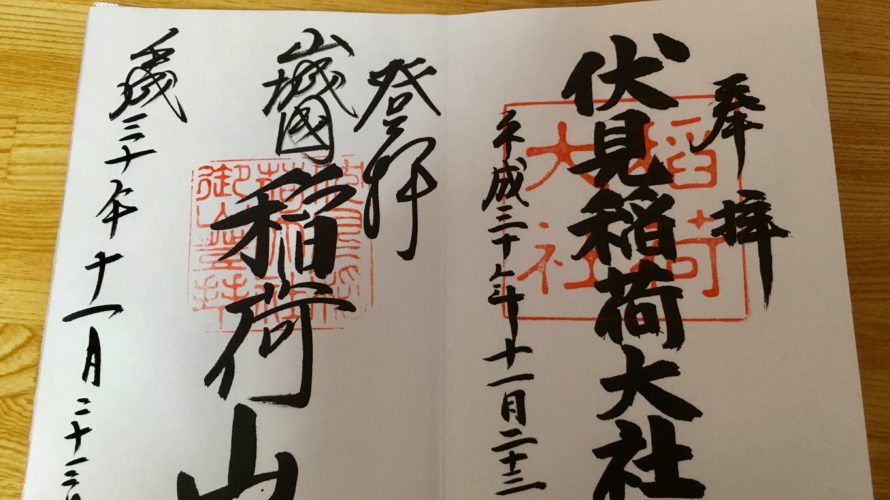 奉拝
伏見稲荷大社
稲荷
大社
平成三十年十一月二十三
登拝
山城国
稲荷山
御山登拝
平成三十年十一月二十三日